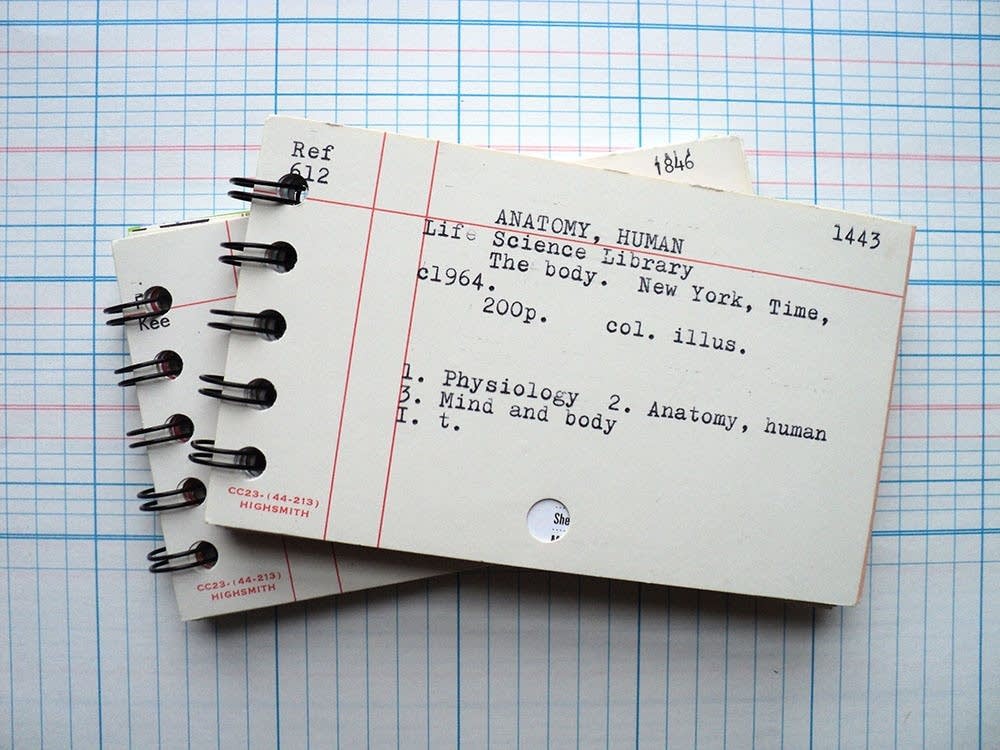 Ref
612
1846
1443
ANATOMY, HUMAN
Life Science Library
The body. New York, Time,
c1964.
200p. col. illus.
1. Physiology 2. Anatomy, human
3. Mind and body
I. t.
She
CC23-(44-213)
HIGHSMITH
Kee
CC23-(44-213)
HIGHSMITH